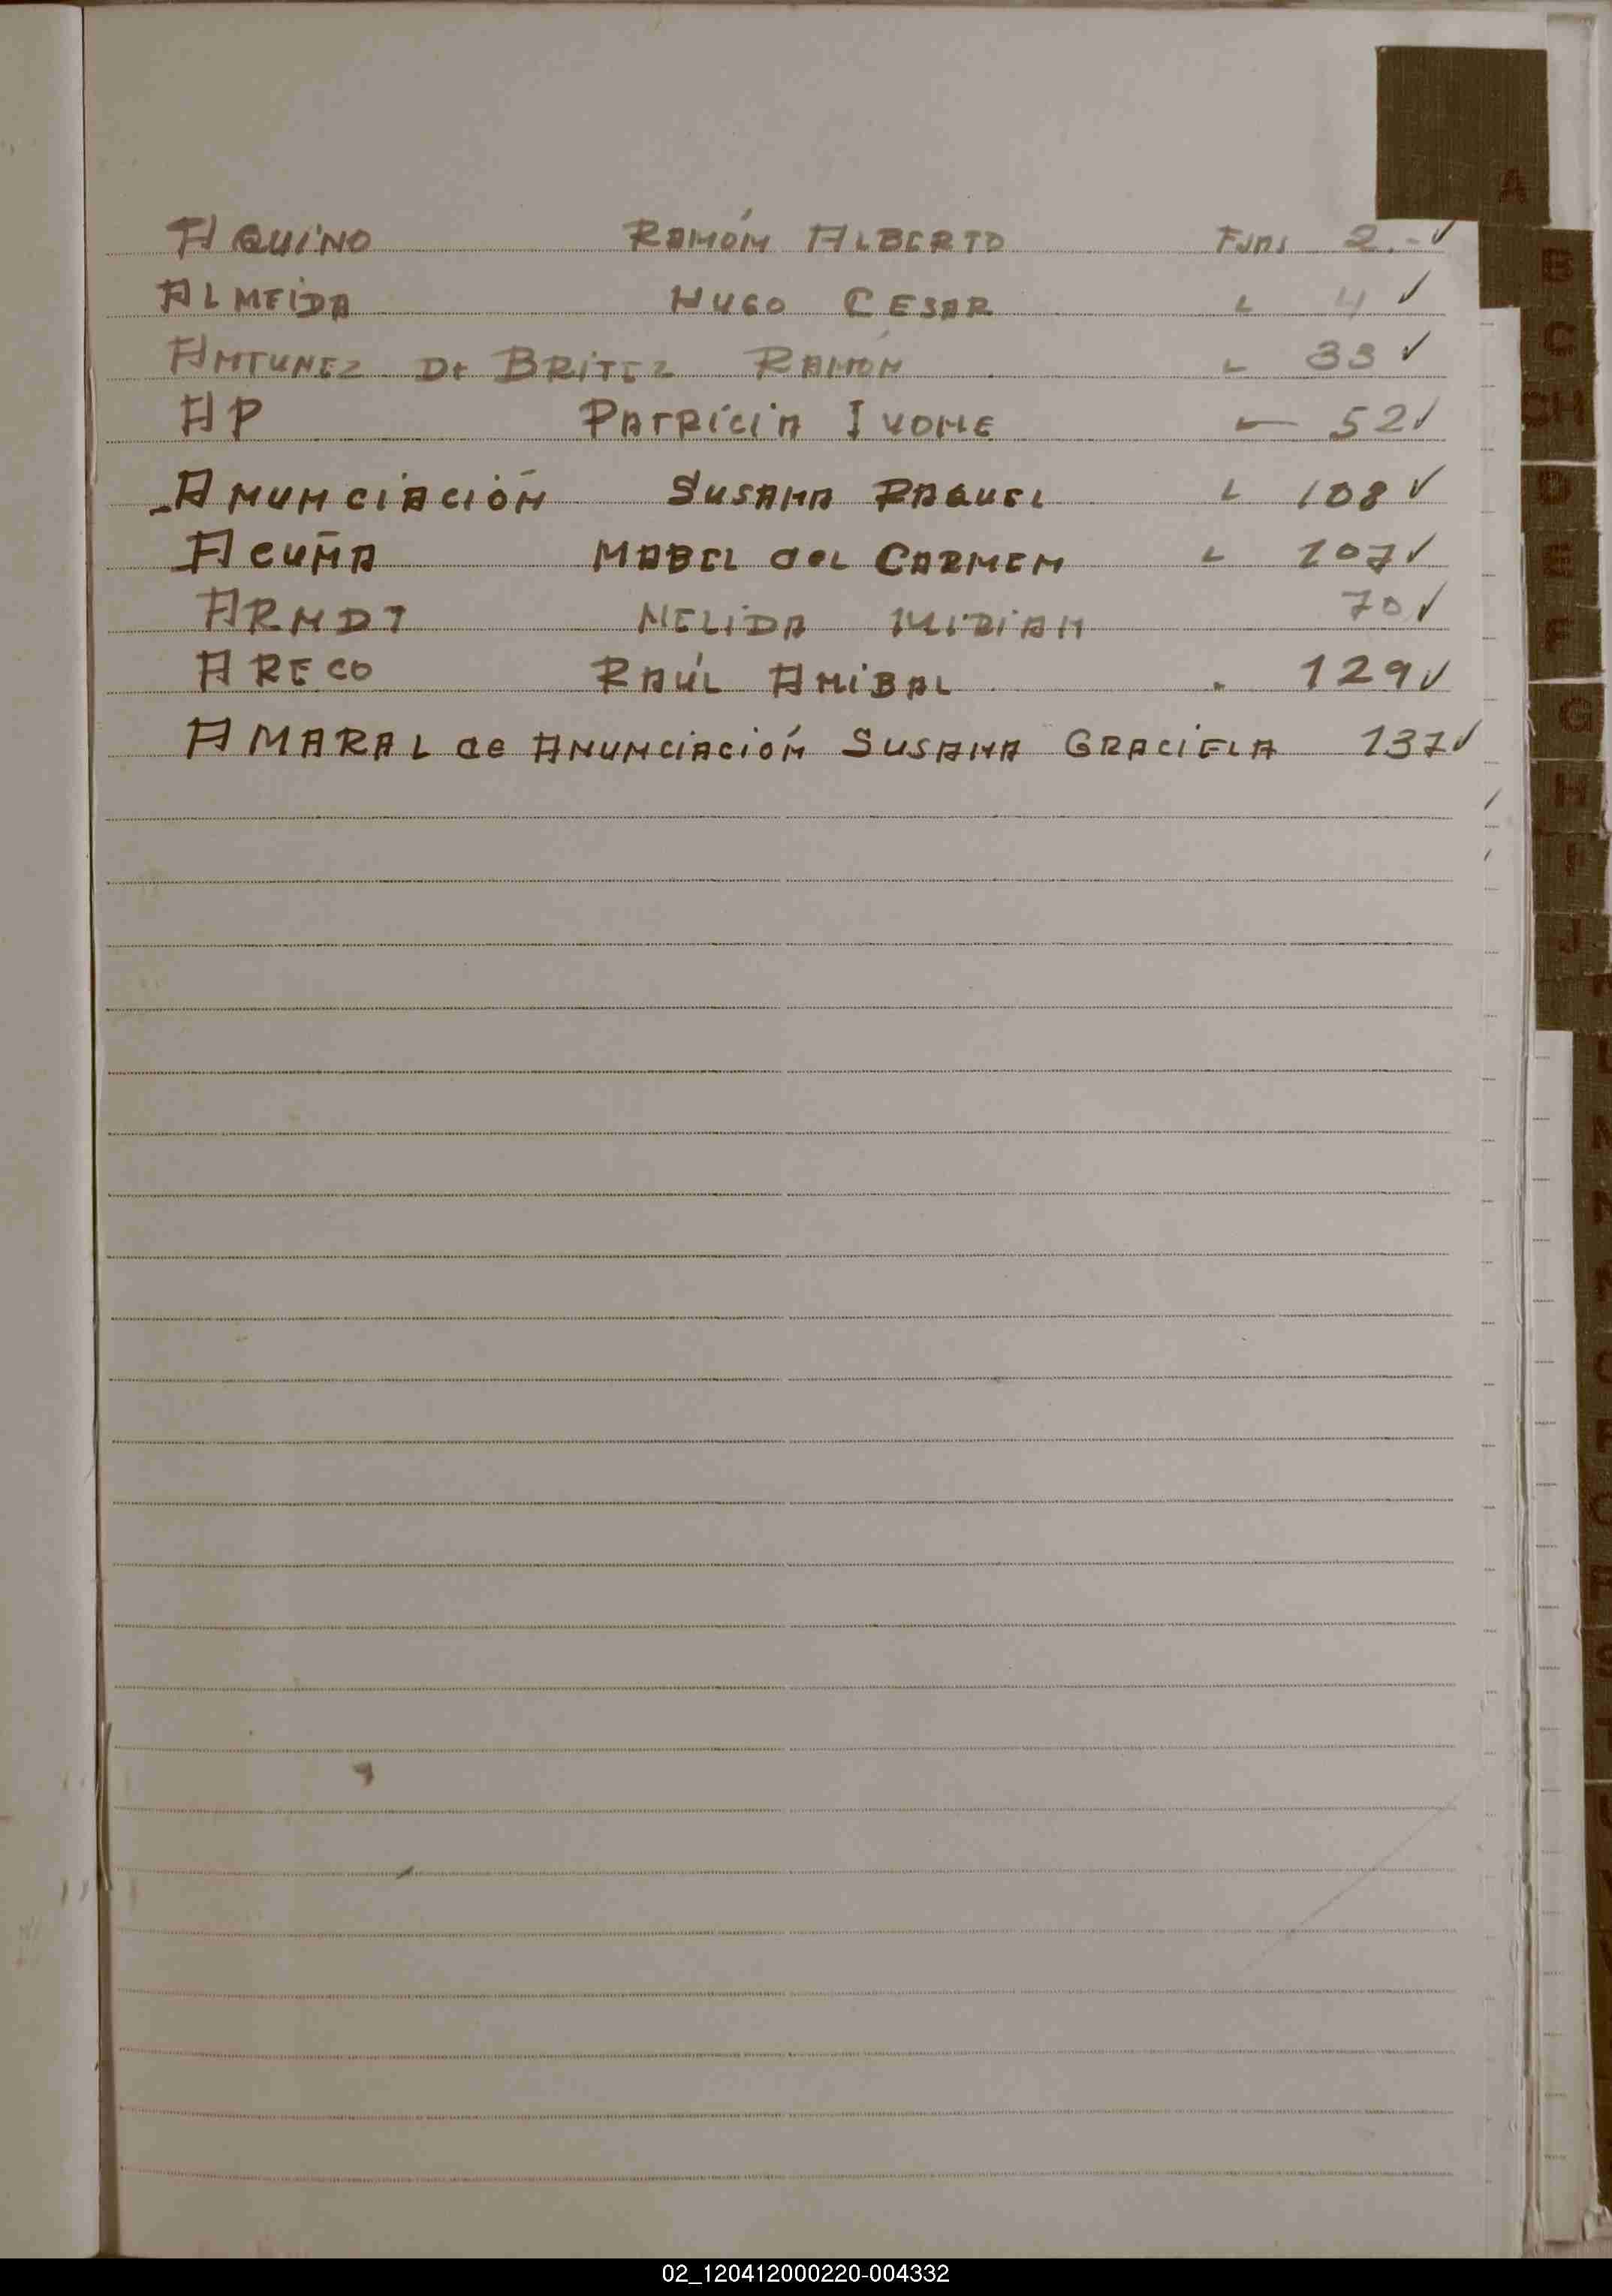 A
AQUINO RAMÓN ALBERTO FJAS 2.- ✓
B
ALMEIDA HUGO CESAR " 4 ✓
C
ANTUNEZ DE BRITEZ RAMÓN " 33 ✓
CH
AP PATRICIA IVONE " 52 ✓
D
ANUNCIACIÓN SUSANA RAQUEL " 108 ✓
E
ACUÑA MABEL del CARMEN " 107 ✓
F
ARNDT NELIDA MIRIAN 70 ✓
ARECO RAÚL ANIBAL " 129 ✓
G
AMARAL de ANUNCIACIÓN SUSANA GRACIELA 137 ✓
H
I
J
02_120412000220-004332